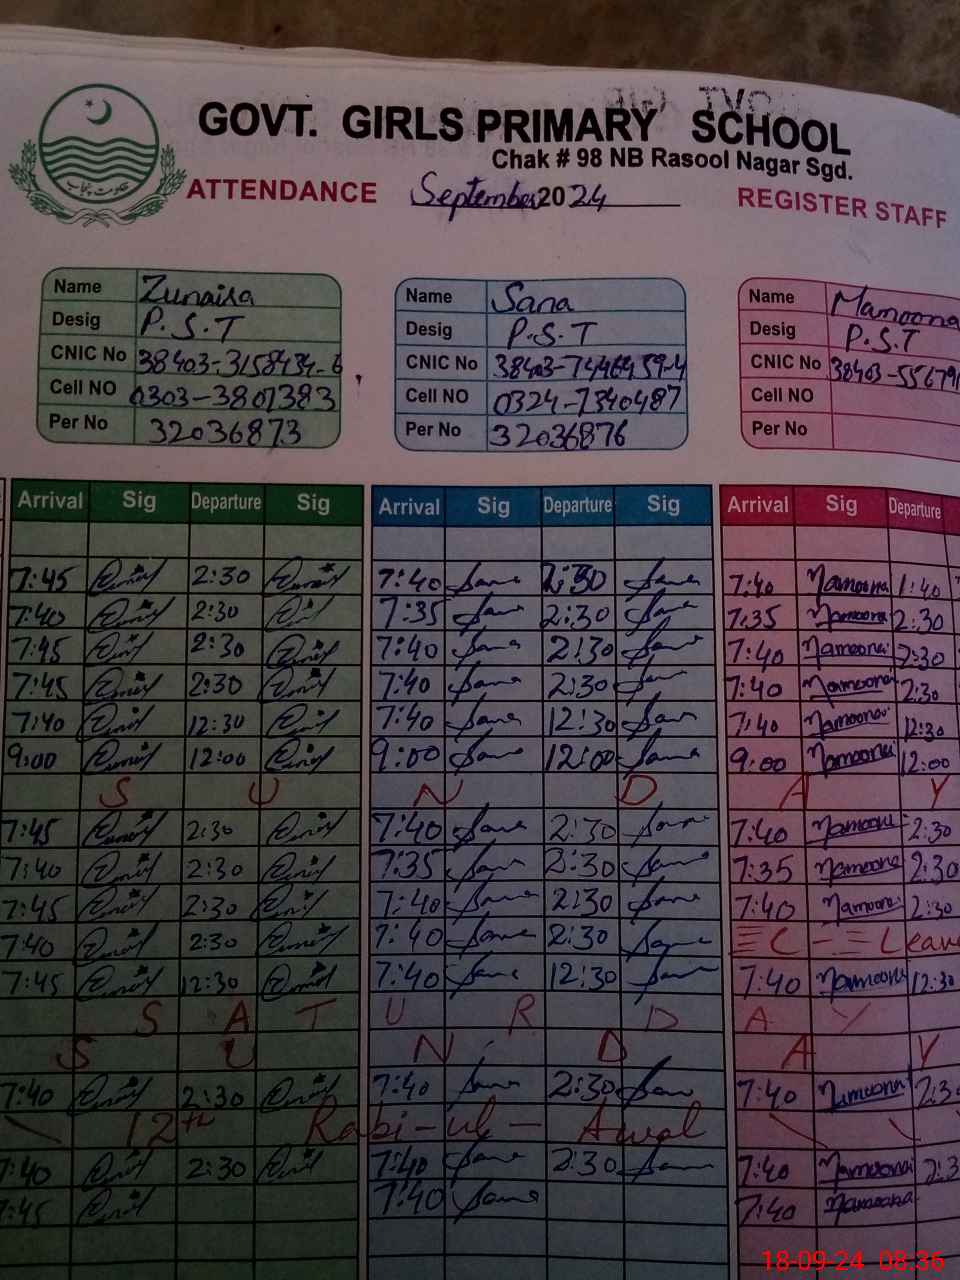 GOVT. GIRLS PRIMARY SCHOOL
Chak # 98 NB Rasool Nagar Sgd.
حکومت پنجاب
ATTENDANCE September 2024 REGISTER STAFF
Name Zunaira Name Sana Name Mamoona
Desig P.S.T Desig P.S.T Desig P.S.T
CNIC No CNIC No CNIC No
Cell NO 0303-3801383 Cell NO 0324-7340487 Cell NO
Per No 32036873 Per No 32036876 Per No
Arrival Sig Departure Sig Arrival Sig Departure Sig Arrival Sig Departure
7:45 2:30 7:40 Sana 2:30 Sana 7:40 Mamoona 1:40
7:40 2:30 7:35 Sana 2:30 Sana 7:35 Mamoona 2:30
7:45 2:30 7:40 Sana 2:30 Sana 7:40 Mamoona 2:30
7:45 2:30 7:40 Sana 2:30 Sana 7:40 Mamoona 2:30
7:40 12:30 7:40 Sana 12:30 Sana 7:40 Mamoona 12:30
9:00 12:00 9:00 Sana 12:00 Sana 9:00 Mamoona 12:00
S U N D A Y
7:45 2:30 7:40 Sana 2:30 Sana 7:40 Mamoona 2:30
7:40 2:30 7:35 Sana 2:30 Sana 7:35 Mamoona 2:30
7:45 2:30 7:40 Sana 2:30 Sana 7:40 Mamoona 2:30
7:40 2:30 7:40 Sana 2:30 Sana C - Leave
7:45 12:30 7:40 Sana 12:30 Sana 7:40 Mamoona 12:30
S A T U R D A Y
S U N D A Y
7:40 2:30 7:40 Sana 2:30 Sana 7:40 Mamoona 2:3
12th Rabi-ul-Awal
7:40 2:30 7:40 Sana 2:30 Sana 7:40 Mamoona 2:3
7:45 7:40 Sana 7:40 Mamoona
18-09-24 08:36